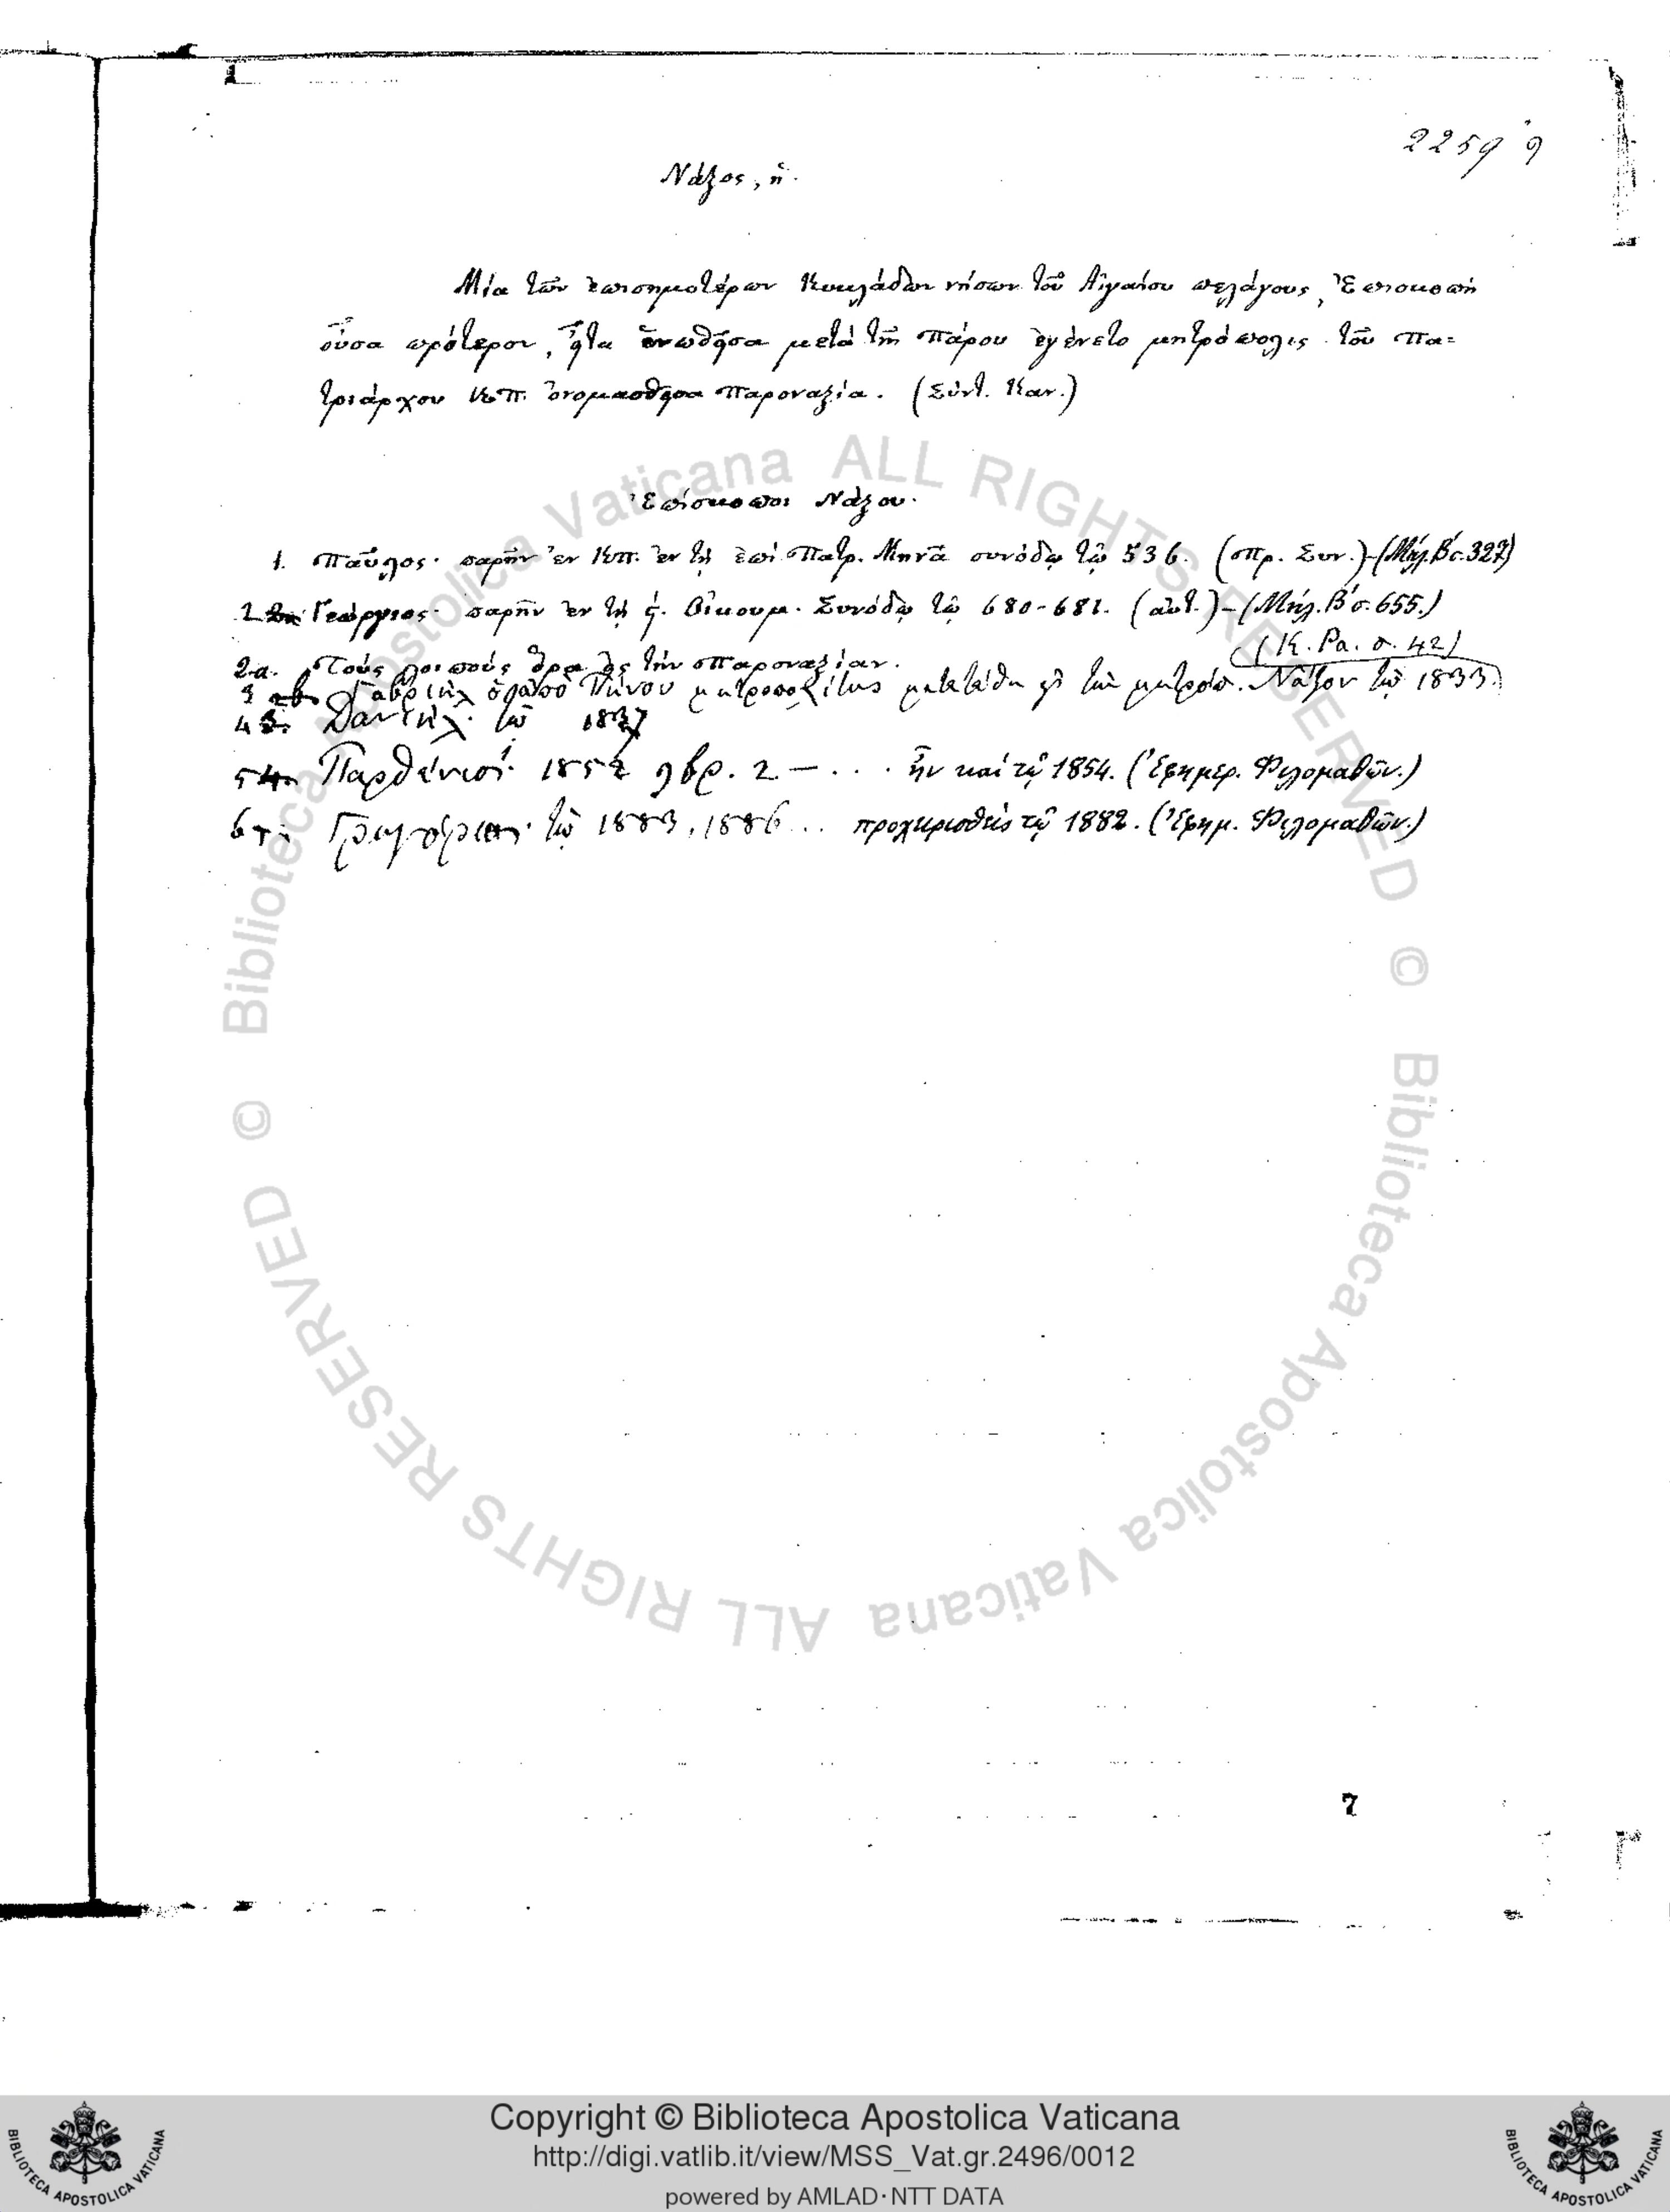 2259 9
Νάξος, ἡ.
Μία τῶν ἐπισημοτέρων Κυκλάδων νήσων τοῦ Αἰγαίου πελάγους, Ἐπισκοπὴ
οὖσα πρότερον, εἶτα ἑνωθεῖσα μετὰ τῆς Πάρου ἐγένετο μητρόπολις τοῦ Πα=
τριάρχου ΚΠ. ὀνομασθεῖσα Παροναξία. (Σύντ. Καν.)
Ἐπίσκοποι Νάξου.
1. Παῦλος· παρῆν ἐν ΚΠ. ἐν τῇ ἐπὶ Πατρ. Μηνᾶ συνόδῳ τῷ 536. (Πρ. Συν.)-(Μήλ. Β΄ σ. 327)
2 Γεώργιος· παρῆν ἐν τῇ ϛ΄. Οἰκουμ. Συνόδῳ τῷ 680-681. (αὐτ.)-(Μήλ. Β΄ σ. 655.)
(Κ. Ρα. σ. 42)
2.α. Τοὺς λοιποὺς ὅρα εἰς τὴν Παροναξίαν.
3 Γαβριὴλ ὁ ἀπὸ Τήνου μητροπολίτης μετετέθη εἰς τὴν μητρόπ. Νάξου τῷ 1833.
4 Δανιὴλ· τῷ 1837
5 Παρθένιος· 1852 9βρ. 2 — . . . ἦν καὶ τῷ 1854. (Ἐφημερ. Φιλομαθῶν.)
6 Γρηγόριος· τῷ 1883, 1886 ... προχειρισθεὶς τῷ 1882. (Ἐφημ. Φιλομαθῶν.)
7
© Biblioteca Apostolica Vaticana ALL RIGHTS RESERVED
© Biblioteca Apostolica Vaticana ALL RIGHTS RESERVED
Copyright © Biblioteca Apostolica Vaticana
http://digi.vatlib.it/view/MSS_Vat.gr.2496/0012
powered by AMLAD·NTT DATA
BIBLIOTECA APOSTOLICA VATICANA
BIBLIOTECA APOSTOLICA VATICANA